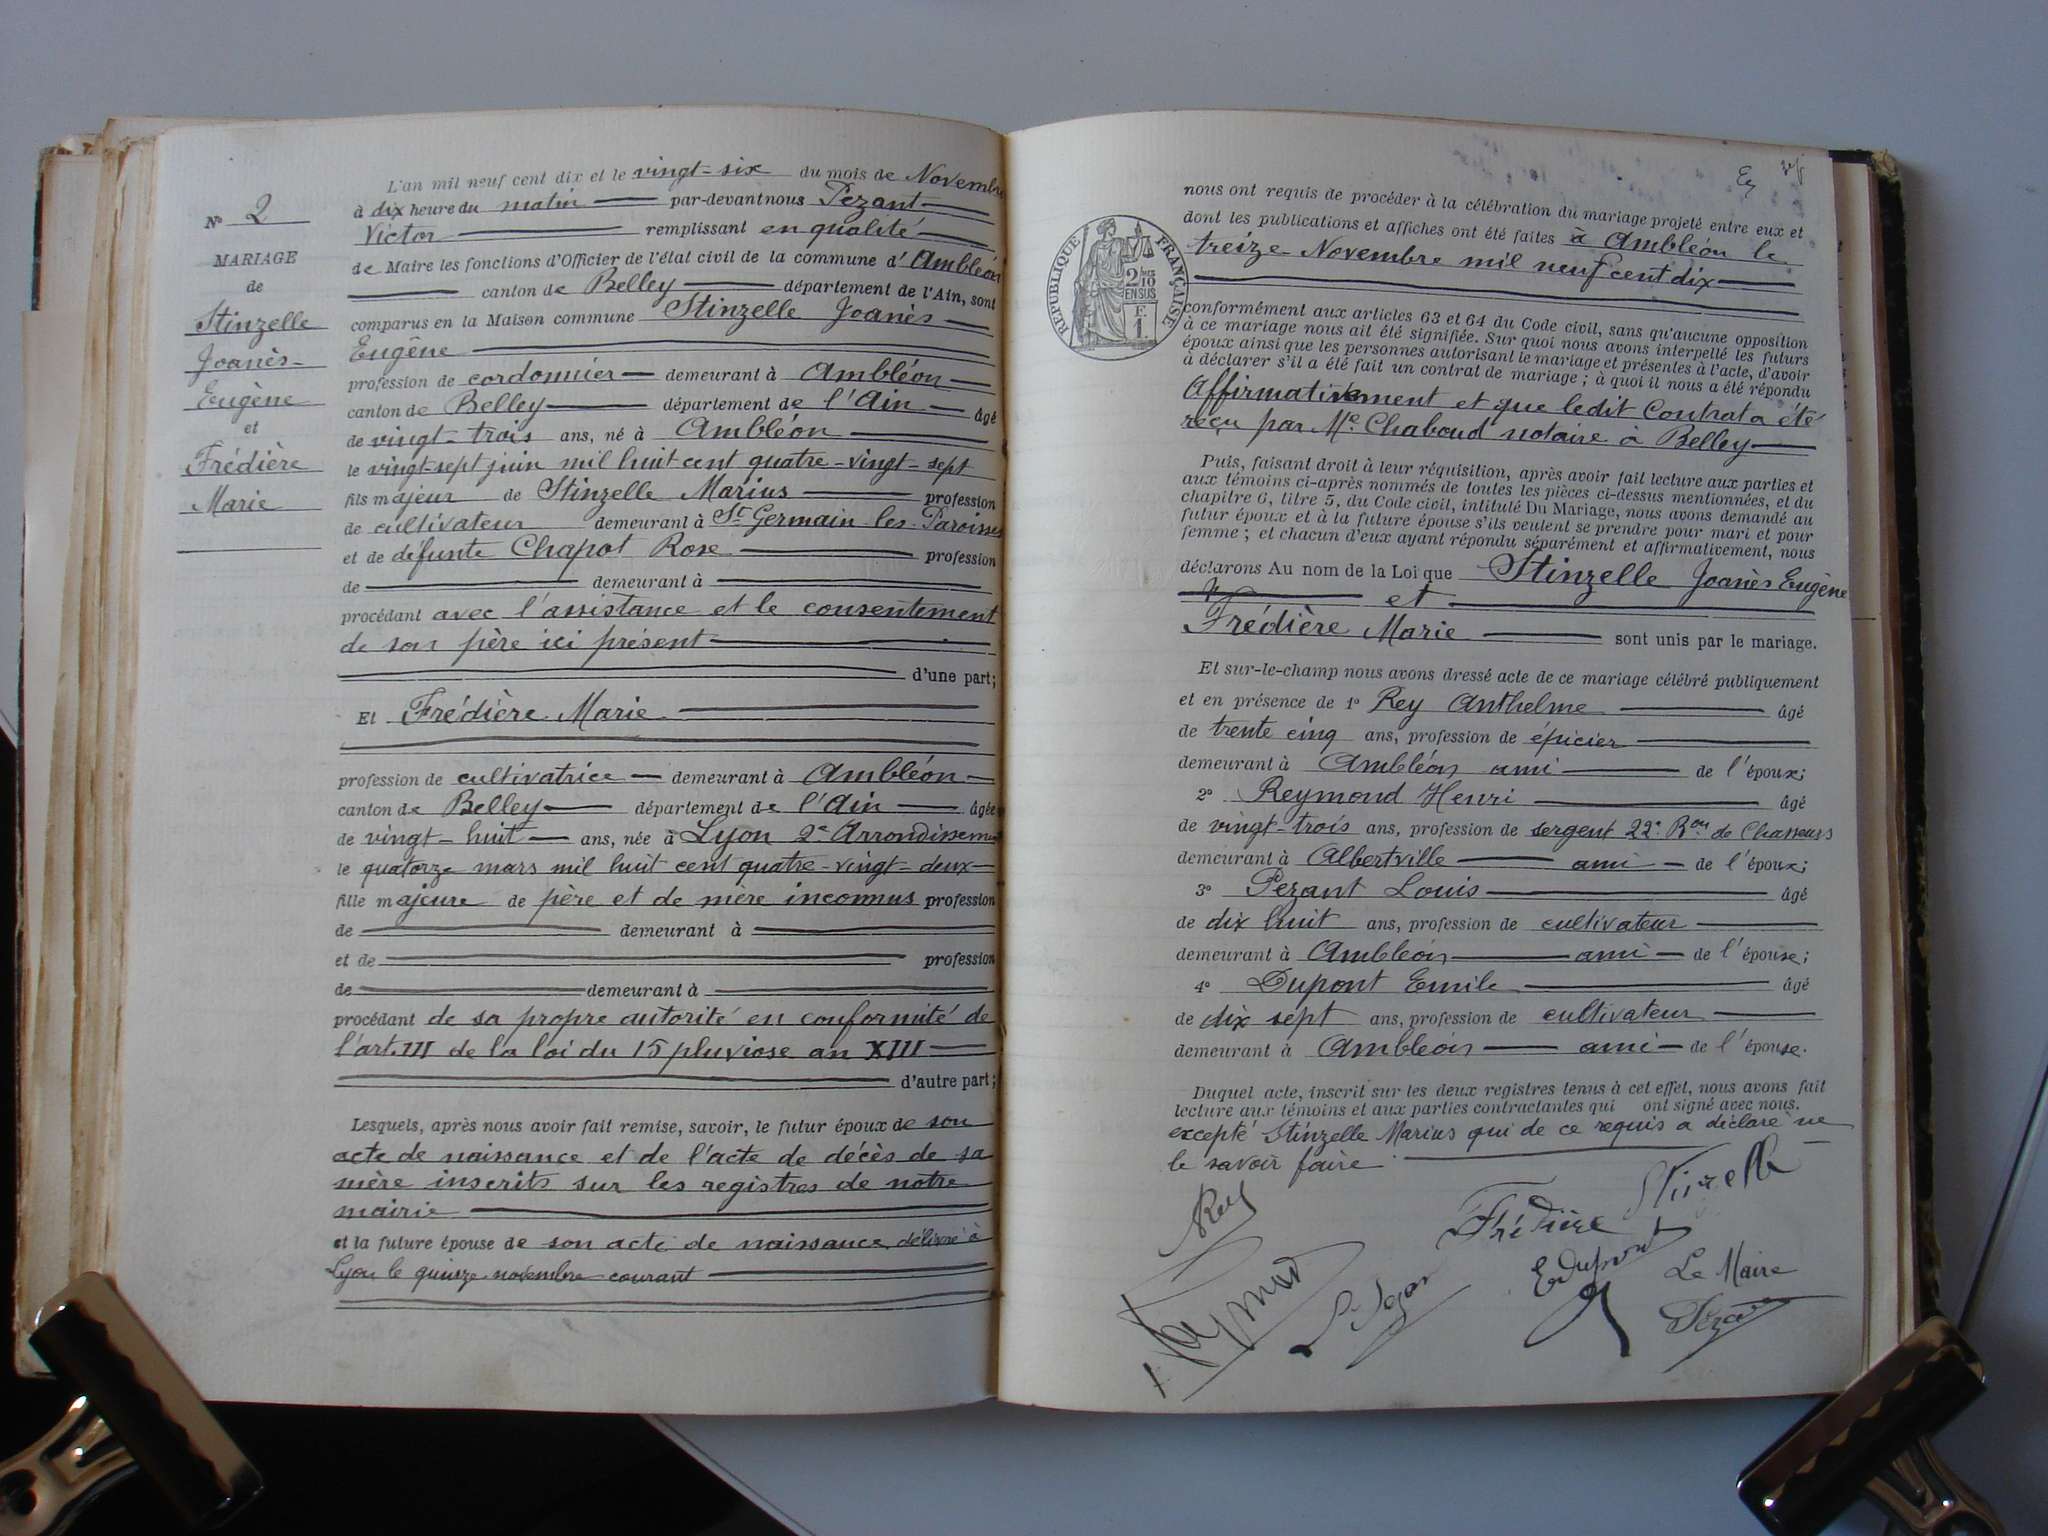 N° 2
MARIAGE
de
Stinzelle
Joanès-
Eugène
et
Frédière
Marie
L'an mil neuf cent dix et le vingt-six du mois de Novembre
à dix heure du matin par-devant nous Pezant
Victor remplissant en qualité
de Maire les fonctions d'Officier de l'état civil de la commune d'Ambléon
canton de Belley département de l'Ain, sont
comparus en la Maison commune Stinzelle Joanès
Eugène
profession de cordonnier demeurant à Ambléon
canton de Belley département de l'Ain âgé
de vingt-trois ans, né à Ambléon
le vingt-sept juin mil huit cent quatre-vingt-sept
fils majeur de Stinzelle Marius profession
de cultivateur demeurant à St Germain les Paroisses
et de défunte Chapot Rose profession
de demeurant à
procédant avec l'assistance et le consentement
de son père ici présent
d'une part;
Et Frédière Marie
profession de cultivatrice demeurant à Ambléon
canton de Belley département de l'Ain âgée
de vingt-huit ans, née à Lyon 2e Arrondissement
le quatorze mars mil huit cent quatre-vingt-deux
fille majeure de père et de mère inconnus profession
de demeurant à
et de profession
de demeurant à
procédant de sa propre autorité en conformité de
l'art. III de la loi du 15 pluviose an XIII
d'autre part;
Lesquels, après nous avoir fait remise, savoir, le futur époux de son
acte de naissance et de l'acte de décès de sa
mère inscrits sur les registres de notre
mairie
et la future épouse de son acte de naissance délivré à
Lyon le quinze novembre courant
REPUBLIQUE FRANÇAISE
2/10
EN SUS
F.
1
nous ont requis de procéder à la célébration du mariage projeté entre eux et
dont les publications et affiches ont été faites à Ambléon le
treize Novembre mil neuf cent dix
conformément aux articles 63 et 64 du Code civil, sans qu'aucune opposition
à ce mariage nous ait été signifiée. Sur quoi nous avons interpellé les futurs
époux ainsi que les personnes autorisant le mariage et présentes à l'acte, d'avoir
à déclarer s'il a été fait un contrat de mariage ; à quoi il nous a été répondu
Affirmativement et que ledit Contrat a été
reçu par Me Chaboud notaire à Belley
Puis, faisant droit à leur réquisition, après avoir fait lecture aux parties et
aux témoins ci-après nommés de toutes les pièces ci-dessus mentionnées, et du
chapitre 6, titre 5, du Code civil, intitulé Du Mariage, nous avons demandé au
futur époux et à la future épouse s'ils veulent se prendre pour mari et pour
femme ; et chacun d'eux ayant répondu séparément et affirmativement, nous
déclarons Au nom de la Loi que Stinzelle Joanès Eugène
et
Frédière Marie sont unis par le mariage.
Et sur-le-champ nous avons dressé acte de ce mariage célébré publiquement
et en présence de 1° Rey Anthelme âgé
de trente cinq ans, profession de épicier
demeurant à Ambléon ami de l'époux;
2° Reymond Henri âgé
de vingt-trois ans, profession de sergent 22e Bon de Chasseurs
demeurant à Albertville ami de l'époux;
3° Pezant Louis âgé
de dix huit ans, profession de cultivateur
demeurant à Ambléon ami de l'épouse;
4° Dupont Emile âgé
de dix sept ans, profession de cultivateur
demeurant à Ambléon ami de l'épouse.
Duquel acte, inscrit sur les deux registres tenus à cet effet, nous avons fait
lecture aux témoins et aux parties contractantes qui ont signé avec nous.
excepté Stinzelle Marius qui de ce requis a déclaré ne
le savoir faire
Rey
Stinzelle
Frédière
Reymond
Le Maire
Pezant